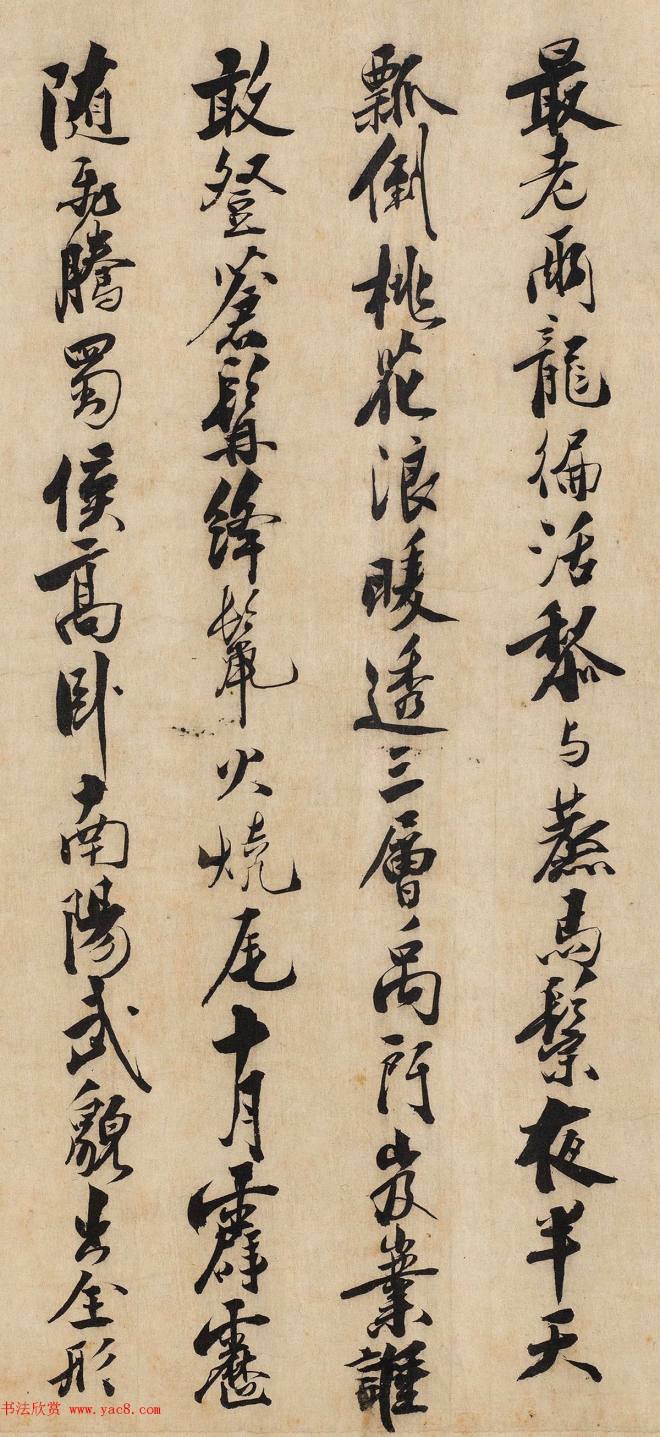 最老雨龍徧活黎与蒸馬鬃夜半天
瓢倒桃花浪暖透三層禹所岌嶪誰
敢登蒼髯絳鬣火燒尾十月霹靂
随飛騰蜀侯高卧南陽武貌出全形
书法欣赏 www.yac8.com